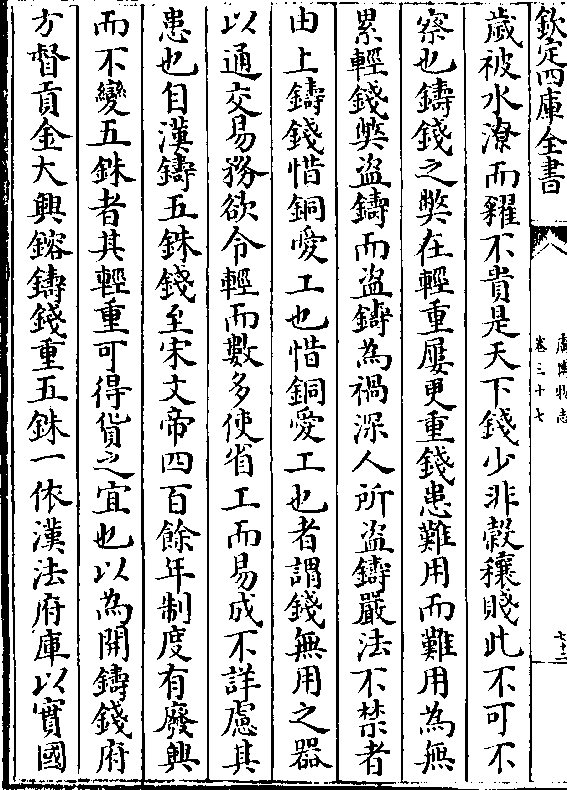 欽定四庫全書
廣博物志
卷三十七
歲被水潦而糴不貴是天下錢少非穀穰賤此不可不
察也鑄錢之獘在輕重屢更重錢患難用而難用為無
累輕錢獘盜鑄而盜鑄為禍深人所盜鑄嚴法不禁者
由上鑄錢惜銅愛工也惜銅愛工也者謂錢無用之器
以通交易務欲令輕而數多使省工而易成不詳慮其
患也自漢鑄五銖錢至宋文帝四百餘年制度有廢興
而不變五銖者其輕重可得貨之宜也以為開鑄錢府
方督貢金大興鎔鑄錢重五銖一依漢法府庫以實國